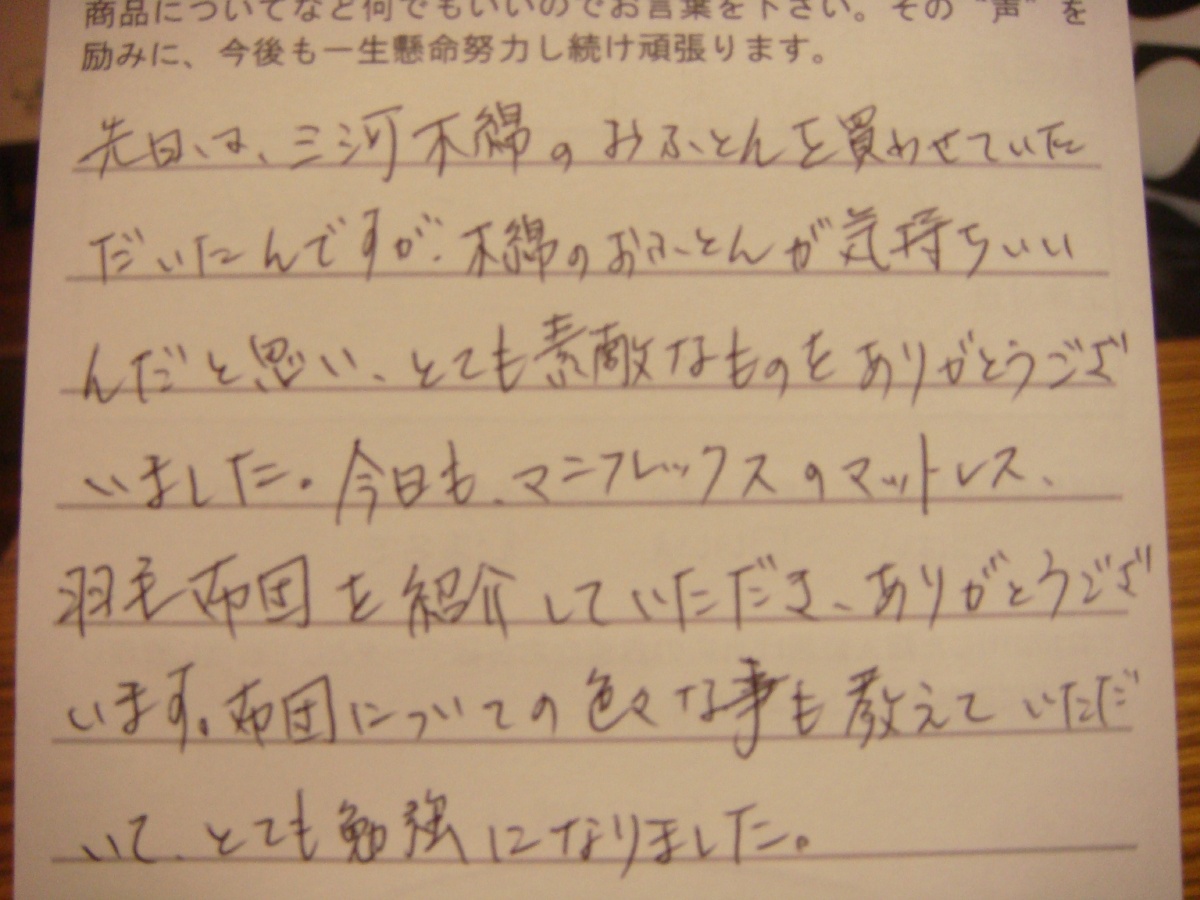 商品についてなど何でもいいのでお言葉を下さい。その"声"を
励みに、今後も一生懸命努力し続け頑張ります。
先日は、三河木綿のおふとんを買わせていた
だいたんですが、木綿のおふとんが気持ちいい
んだと思い、とても素敵なものをありがとうござ
いました。今日も、マニフレックスのマットレス、
羽毛布団を紹介していただき、ありがとうござ
います。布団についての色々な事も教えていただ
いて、とても勉強になりました。